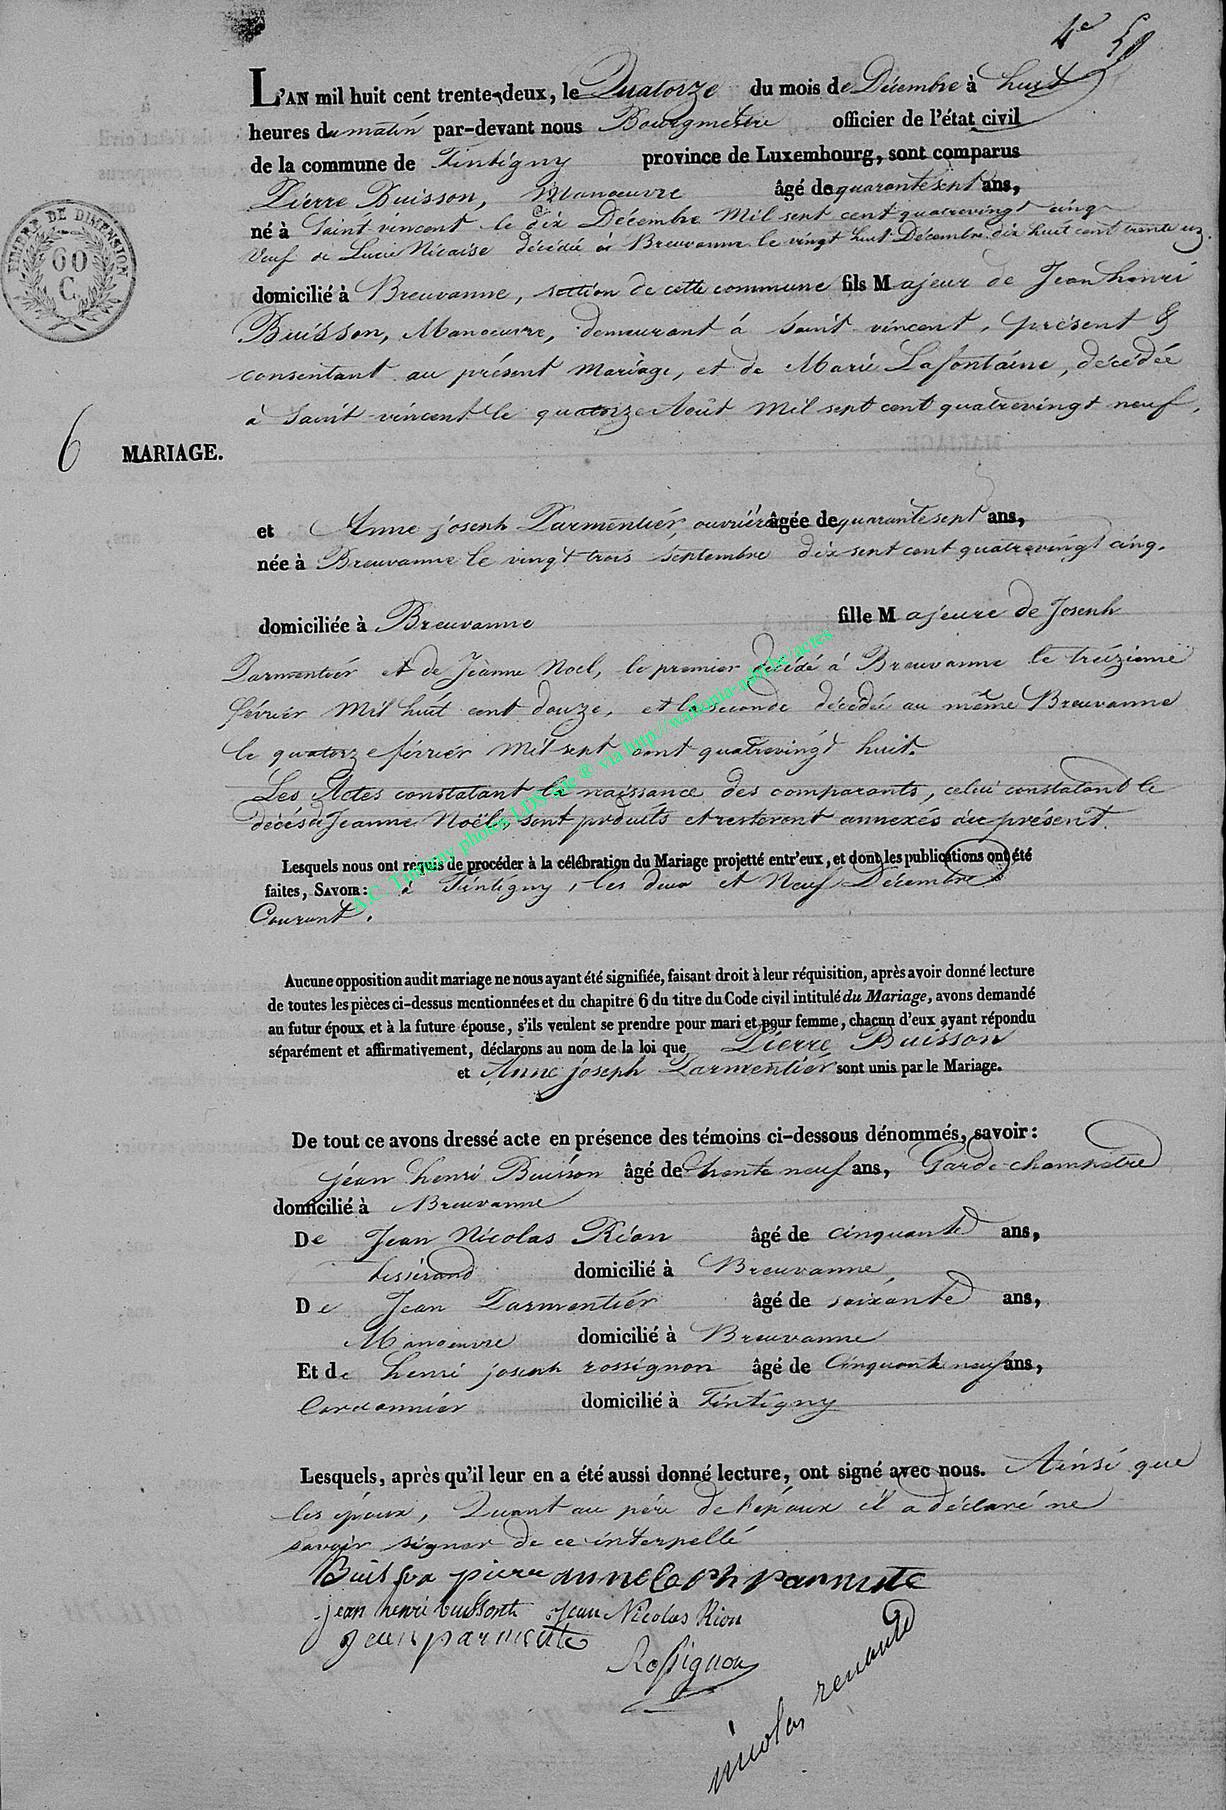 4e 50
L'AN mil huit cent trente-deux, le Quatorze du mois de Décembre à huit
heures du matin par-devant nous Bourgmestre officier de l'état civil
de la commune de Tintigny province de Luxembourg, sont comparus
Pierre Buisson, Manoeuvre âgé de quarante sept ans,
né à Saint vincent le dix Décembre Mil sept cent quatrevingt cinq
Veuf de Lucie Nicaise décédée à Breuvanne le vingt huit Décembre dix huit cent trente un
domicilié à Breuvanne, section de cette commune fils Majeur de Jean henri
Buisson, Manoeuvre, demeurant à Saint vincent, présent &
consentant au présent Mariage, et de Marie Lafontaine, décédée
à Saint vincent le quatorze Août Mil sept cent quatrevingt neuf,
6 MARIAGE.
et Anne joseph Parmentiér, ouvrière âgée de quarante sept ans,
née à Breuvanne le vingt trois Septembre dix sept cent quatrevingt cinq.
domiciliée à Breuvanne fille Majeure de Joseph
Parmentiér et de Jéanne Noel, le premier décédé à Breuvanne le treizieme
février Mil huit cent douze, et la seconde décédée au même Breuvanne
le quatorze février Mil sept cent quatrevingt huit.
Les Actes constatant la naissance des comparants, celui constatant le
décès de Jeanne Noël, sont produits et resteront annexés au présent.
Lesquels nous ont requis de procéder à la célébration du Mariage projetté entr'eux, et dont les publications ont été
faites, SAVOIR: à Tintigny, les deux et Neuf Décembre
Courant.
Aucune opposition audit mariage ne nous ayant été signifiée, faisant droit à leur réquisition, après avoir donné lecture
de toutes les pièces ci-dessus mentionnées et du chapitre 6 du titre du Code civil intitulé du Mariage, avons demandé
au futur époux et à la future épouse, s'ils veulent se prendre pour mari et pour femme, chacun d'eux ayant répondu
séparément et affirmativement, déclarons au nom de la loi que Pierre Buisson
et Anne joseph Parmentiér sont unis par le Mariage.
De tout ce avons dressé acte en présence des témoins ci-dessous dénommés, savoir:
jéan henri Buisson âgé de trente neuf ans, Garde-champêtre
domicilié à Breuvanne
De Jean Nicolas Rion âgé de cinquante ans,
tisserand domicilié à Breuvanne
De Jean Parmentiér âgé de soixante ans,
Manoeuvre domicilié à Breuvanne
Et de henri joseph rossignon âgé de Cinquante neuf ans,
Cordonniér domicilié à Tintigny
Lesquels, après qu'il leur en a été aussi donné lecture, ont signé avec nous. Ainsi que
les époux, Quant au père de l'épóux il a déclaré ne
savoir signer de ce interpellé
Buisson pierre anne Joseph Parmente
jean henri buissont Jean Nicolas Rion
jean parmente
Rossignon
nicolas renauld
TIMBRE DE DIMENSION
60
C.
A.C. Tintigny photos LDS site ® via http://wallonia-asbl.be/actes